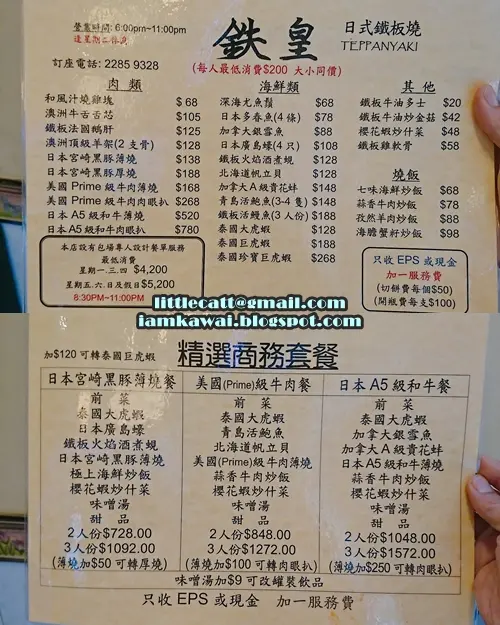 營業時間: 6:00pm~11:00pm
逢星期二休息
訂座電話: 2285 9328
鉄皇
日式鐵板燒
TEPPANYAKI
(每人最低消費$200 大小同價)
肉類
和風汁燒雞塊 $68
澳洲牛舌芯 $105
鐵板法國鵝肝 $125
澳洲頂級羊架(2 支骨) $128
日本宮崎黑豚薄燒 $138
日本宮崎黑豚厚燒 $188
美國 Prime 級牛肉薄燒 $168
美國 Prime 級牛肉肉眼扒 $268
日本 A5 級和牛薄燒 $520
日本 A5 級和牛肉眼扒 $780
本店設有包場專人設計餐單服務
最低消費
星期一.三.四 $4,200
星期五.六.日及假日$5,200
8:30PM~11:00PM
海鮮類
深海尤魚鬚 $68
日本多春魚(4 條) $78
加拿大銀雪魚 $88
日本廣島蠔(4 只) $108
鐵板火焰酒煮蜆 $128
北海道帆立貝 $128
加拿大A級貴花蚌 $148
青島活鮑魚(3-4 隻) $148
鐵板活鰻魚(3 人份) $188
泰國大虎蝦 $128
泰國巨虎蝦 $188
泰國珍寶巨虎蝦 $268
其他
鐵板牛油多士 $20
鐵板牛油炒金菇 $42
櫻花蝦炒什菜 $48
鐵板雞軟骨 $58
燒飯
七味海鮮炒飯 $68
蒜香牛肉炒飯 $78
孜然羊肉炒飯 $88
海膽蟹籽炒飯 $98
只收 EPS 或現金
加一服務費
(切餅費每個$50)
(開瓶費每支$100)
littlecatt@gmail.com
iamkawai.blogspot.com
加$120 可轉泰國巨虎蝦
精選商務套餐
日本宮崎黑豚薄燒餐
前菜
泰國大虎蝦
日本廣島蠔
鐵板火焰酒煮蜆
日本宮崎黑豚薄燒
極上海鮮炒飯
櫻花蝦炒什菜
味噌湯
甜品
2 人份$728.00
3 人份$1092.00
(薄燒加$50 可轉厚燒)
美國(Prime)級牛肉餐
前菜
泰國大虎蝦
青島活鮑魚
北海道帆立貝
美國(Prime)級牛肉薄燒
蒜香牛肉炒飯
櫻花蝦炒什菜
味噌湯
甜品
2 人份$848.00
3 人份$1272.00
(薄燒加$100 可轉肉眼扒)
日本 A5 級和牛餐
前菜
泰國大虎蝦
加拿大銀雪魚
加拿大A級貴花蚌
日本A5級和牛薄燒
蒜香牛肉炒飯
櫻花蝦炒什菜
味噌湯
甜品
2 人份$1048.00
3 人份$1572.00
(薄燒加$250 可轉肉眼扒)
味噌湯加$9 可改罐裝飲品
只收 EPS 或現金 加一服務費